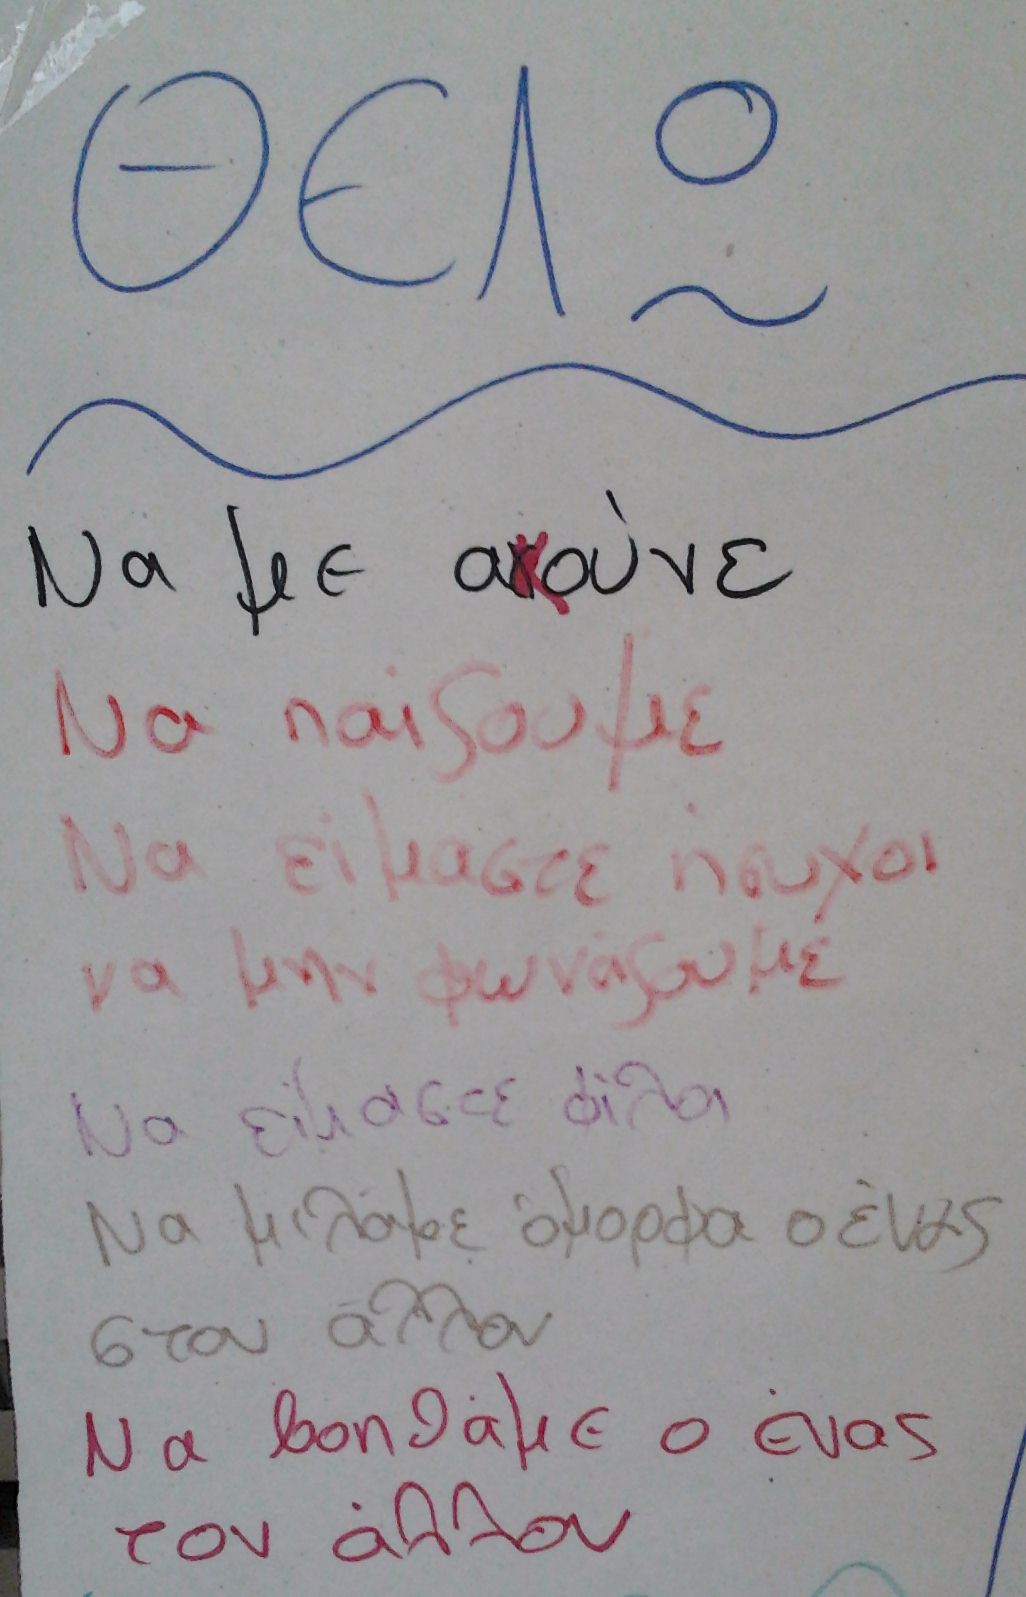 ΘΕΛΩ
Να με ακούνε
Να παίζουμε
Να είμαστε ήσυχοι
να μην φωνάζουμε
Να είμαστε φίλοι
Να μιλάμε όμορφα ο ένας
στον άλλον
Να βοηθάμε ο ένας
τον άλλον